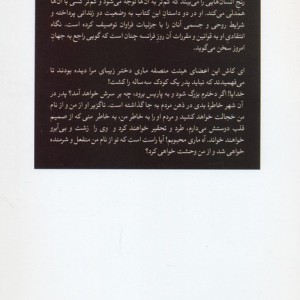 رنج انسان‌هایی را می‌بیند که کم‌تر به آن‌ها توجه می‌شود و کم‌تر کسی با آن‌ها
همدلی می‌کند. او در دو داستانِ این کتاب به وضعیت دو زندانی پرداخته و
شرایط روحی و جسمی آنان را با جزئیات فراوان توصیف کرده است. نگاه
انتقادی او به قوانین و مقررات آن روز فرانسه چنان است که گویی راجع به جهانِ
امروز سخن می‌گوید.
ای کاش این اعضای هیئت منصفه ماری دختر زیبای مرا دیده بودند تا
می‌فهمیدند که نباید پدر یک کودک سه ساله را کشت!
خدایا! اگر دخترم بزرگ شود و به پاریس برود، چه بر سرش خواهد آمد؟ پدر در
آن شهر خاطرهٔ بدی در ذهن مردم به جا گذاشته است. ناگزیر او از من و از نام
من خجالت خواهد کشید و مردم او را به خاطر من، به خاطر منی که از صمیم
قلب دوستش دارم، طرد و تحقیر خواهند کرد و وی را زشت و بی‌آبرو
خواهند خواند. آه ماری محبوبم! آیا راست است که تو از نام من منفعل و شرمنده
خواهی شد و از من وحشت خواهی کرد؟